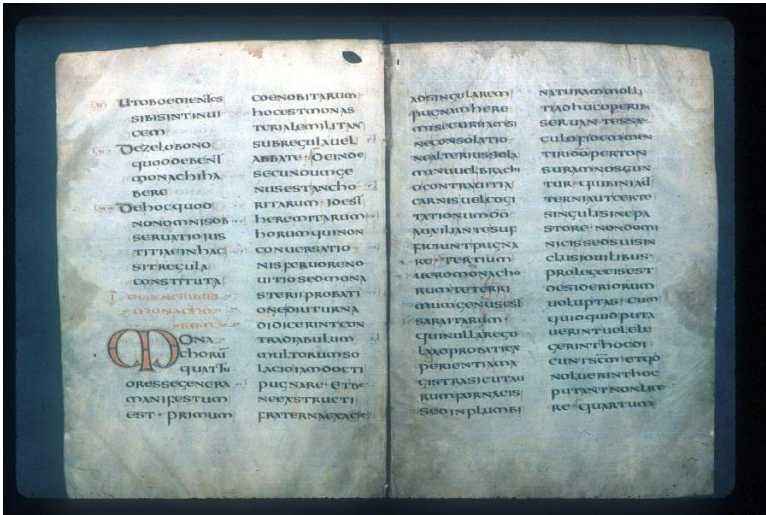 UTOBOEDIENTES
SIBISINTINUI
CEM
DEZELOBONO
QUODDEBENT
MONACHIHA
BERE
DEHOCQUOD
NONOMNISOB
SERUATIOIUS
TITIAEINHAC
SITREGULA
CONSTITUTA
I DEGENERIBUS
MONACHO
RUM
MONA
CHORŪ
QUATTU
ORESSEGENERA
MANIFESTUM
EST · PRIMUM
COENOBITARUM
HOCESTMONAS
TERIALEMILITAN
SUBREGULAUEL
ABBATE · DEINDE
SECUNDUMGE
NUSESTANCHO
RITARUM · IDEST
HEREMITARUM
HORUMQUINON
CONUERSATIO
NISFERUORENO
UITIOSEDMONA
STERIIPROBATI
ONEDIUTURNA
DIDICERINTCUN
TRADIABULUM
MULTORUMSO
LACIOIAMDOCTI
PUGNARE · ETBE
NEEXSTRUCTI
FRATERNAEXACIE
ADSINGULAREM
PUGNAMHERE
MISECURIIAMSI
NECONSOLATIO
NEALTERIUSSOLA
MANUUELBRACHI
OCONTRAUITIA
CARNISUELCOGI
TATIONUMDŌ
AUXILIANTESUF
FICIUNTPUGNA
RE · TERTIUM
UEROMONACHO
RUMTETERRI
MUMGENUSEST
SARAITARUM
QUINULLAREGU
LAADPROBATIEX
PERIENTIAMA
GISTRASICUTAU
RUMFORNACIS
SEDINPLUMBI
NATURAMMOLLI
TIADHUCOPERIB
SERUANTESSAE
CULOFIDEMMEN
TIRIDŌPERTON
SURAMNOSCUN
TUR · QUIBINIAUT
TERNIAUTCERTE
SINGULISINEPA
STORE · NONDOMI
NICISSEDSUISIN
CLUSIOUILIBUS
PROLEGEEISEST
DESIDERIORUM
UOLUPTAS · CUM
QUIDQUIDPUTA
UERINTUELELE
GERINTHOCDI
CUNTSCM̄ETQD
NOLUERINTHOC
PUTANTNONLICE
RE · QUARTUM